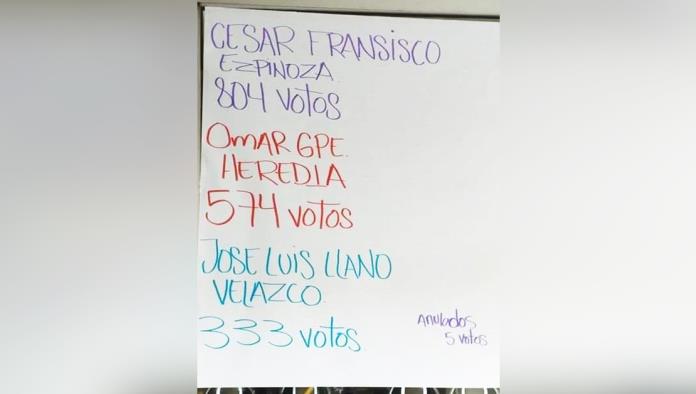 CESAR FRANSISCO
EZPINOZA
804 votos
OMAR GPE.
HEREDIA
574 votos
JOSE LUIS LLANO
VELAZCO
333 votos
Anulados
5 votos